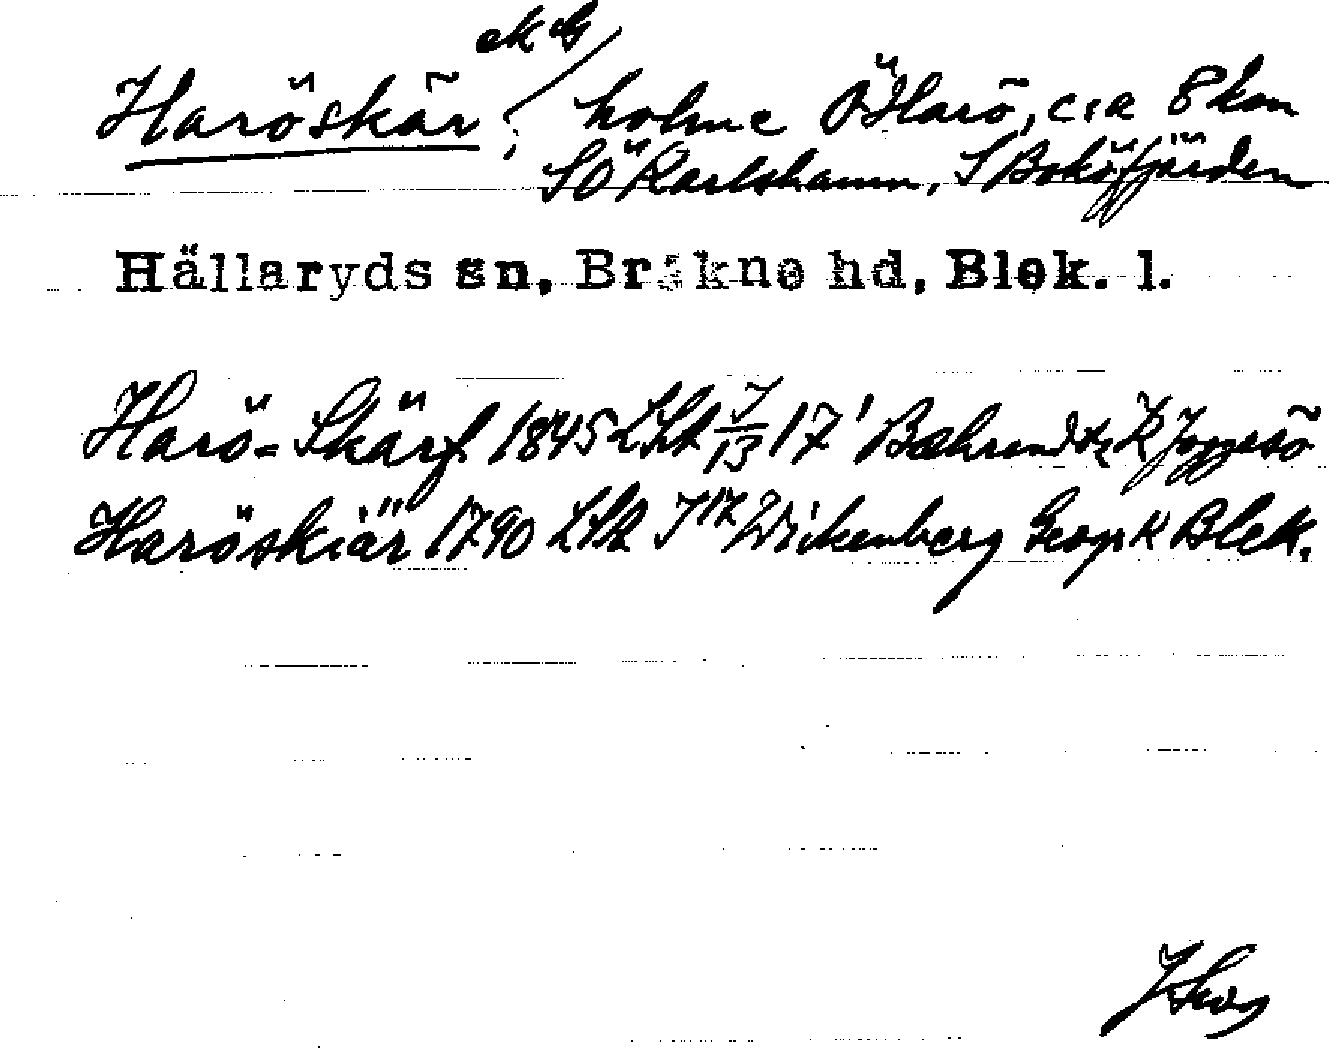 ek G
Haröskär; holme Ö Harö, c:a 8 km
SÖ Karlshamn, S Boköfjärden
Hällaryds sn, Bräkne hd, Blek. l.
Harö-Skärf 1845 LSA 17' Behrendtz K Joggesö
Haröskiär 1790 LSA J 12 Wickenberg Geogr K Blek.